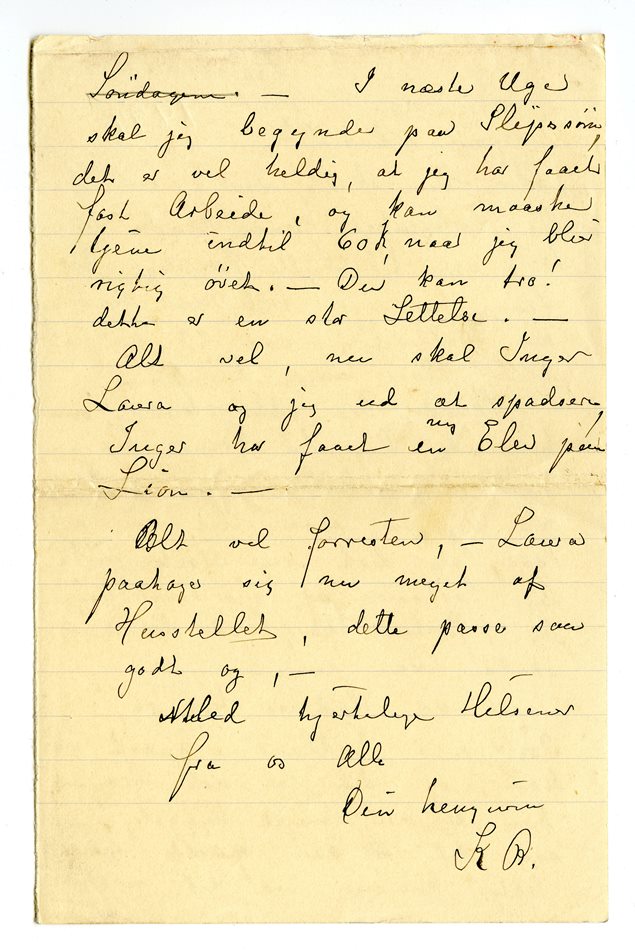 Söndagene. — I næste Uge
skal jeg begynde paa
det er vel heldig, at jeg har faaet
fast Arbeide, og kan maaske
tjene indtil 60 K, naar jeg blir
rigtig övet. — Du kan tro!
dette er en stor Lettelse. —
Alt vel, nu skal Inger
Laura og jeg ud at spadsere,
Inger har faaet en ny Elev paa
Lion. —
Alt vel forresten, — Laura
paatager sig nu meget af
Husstellet, dette passe saa
godt og, —
Med hjertelige Hilsener
fra os Alle
Din hengivne
K B.